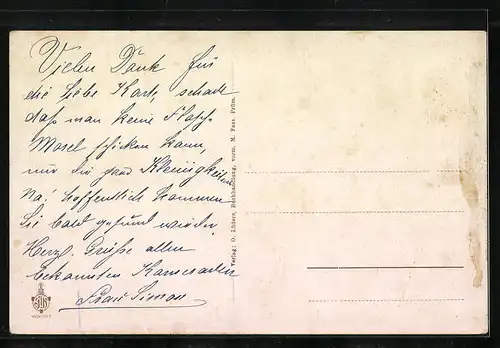 Vielen Dank für
die liebe Karte, schade
daß man keine Flasche
Mosel schicken kann,
nur die paar Kleinigkeiten
Na! hoffentlich kommen
Sie bald gesund wieder.
Herzl. Grüße allen
bekannten Kameraden
Frau Simon
Verlag: O. Lüders, Buchhandlung, vorm. M. Fass. Prüm.